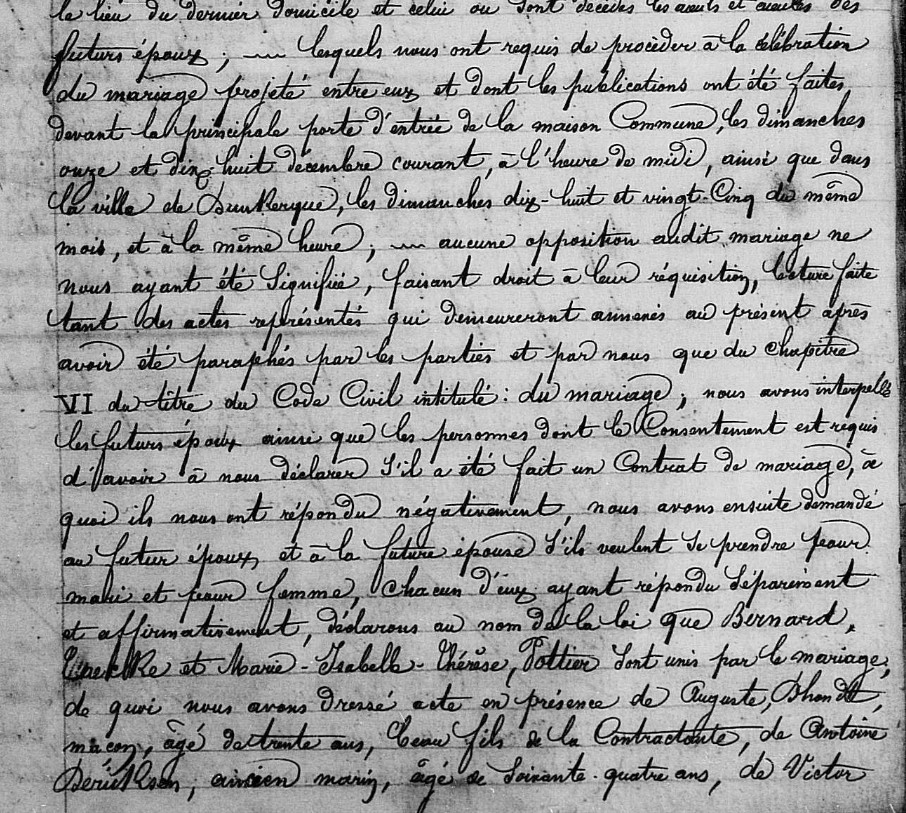 le lieu du dernier domicile et celui où sont décédés les aïeuls et aïeules des
futurs époux ; — lesquels nous ont requis de procéder à la célébration
du mariage projeté entre eux et dont les publications ont été faites
devant la principale porte d'entrée de la maison Commune, les dimanches
onze et dix huit décembre courant, à l'heure de midi, ainsi que dans
la ville de Dunkerque, les dimanches dix-huit et vingt-Cinq du même
mois, et à la même heure ; — aucune opposition audit mariage ne
nous ayant été Signifiée, faisant droit à leur réquisition, lecture faite
tant des actes représentés qui demeureront annexés au présent après
avoir été paraphés par les parties et par nous que du chapitre
VI du titre du Code Civil intitulé : du mariage ; nous avons interpellé
les futurs époux ainsi que les personnes dont le Consentement est requis
d'avoir à nous déclarer S'il a été fait un Contrat de mariage, à
quoi ils nous ont répondu négativement, nous avons ensuite demandé
au futur époux et à la future épouse S'ils veulent Se prendre pour
mari et pour femme, chacun d'eux ayant répondu Séparément
et affirmativement, déclarons au nom de la loi que Bernard,
et Marie-Isabelle-Thérèse, Pottier Sont unis par le mariage,
de quoi nous avons dressé acte en présence de Auguste, Dhondt,
maçon, âgé de trente ans, beau fils de la Contractante, de Antoine
ancien marin, âgé de Soixante-quatre ans, de Victor